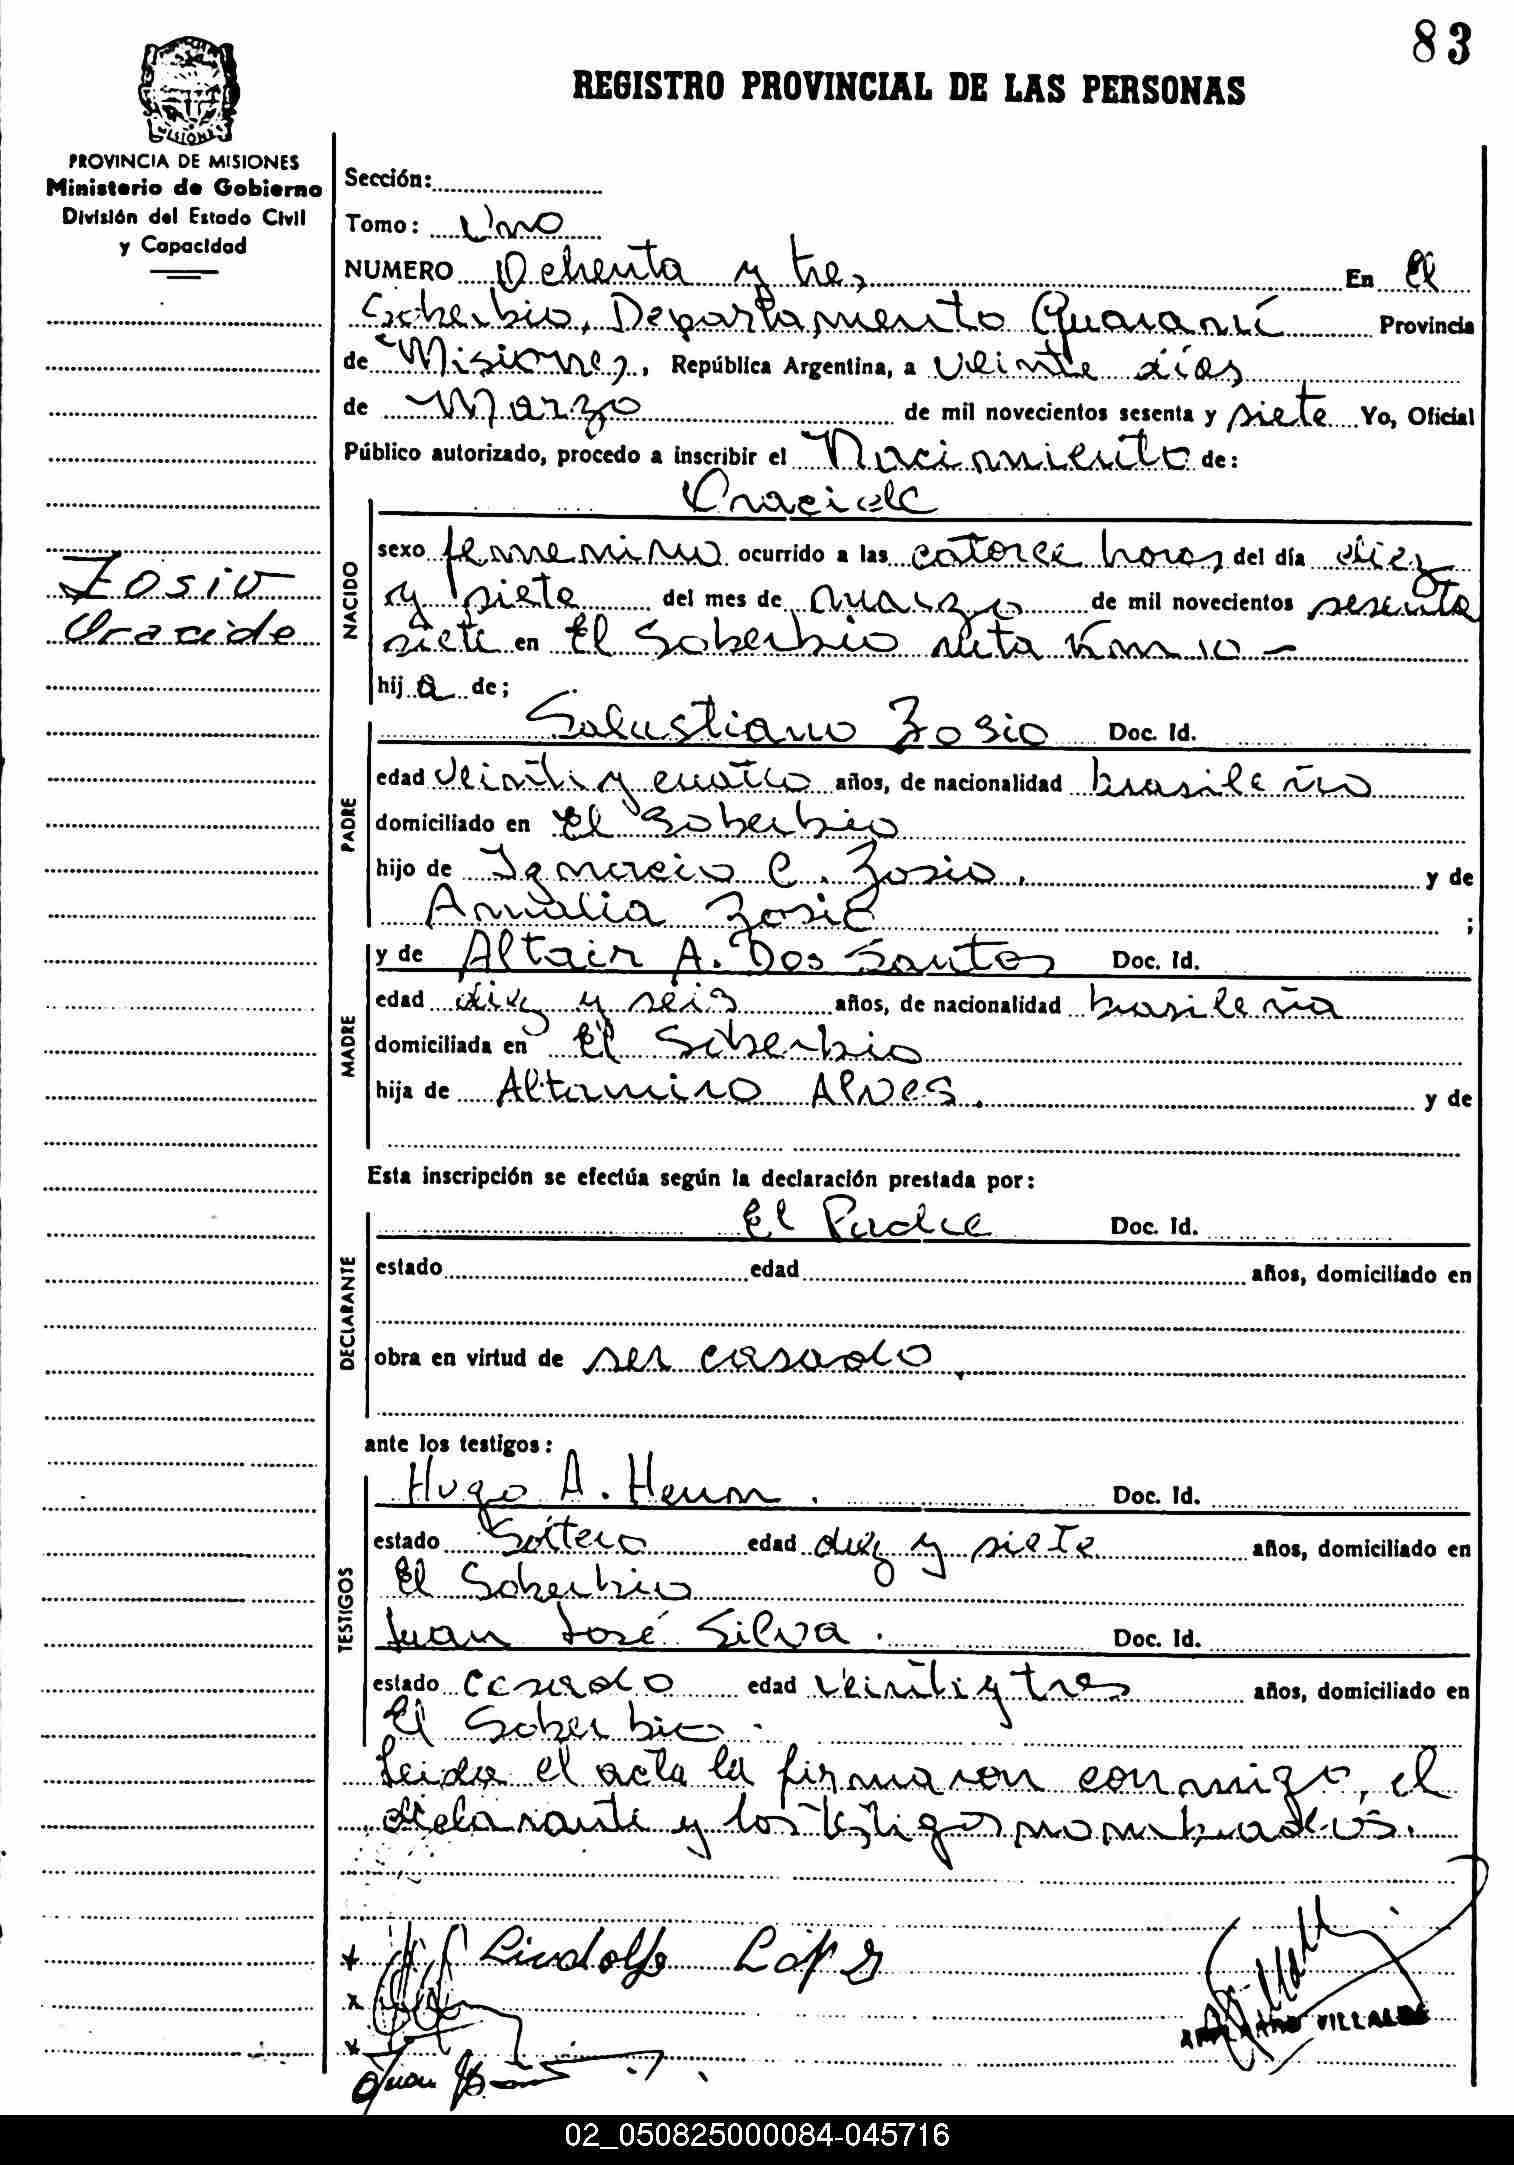 83
REGISTRO PROVINCIAL DE LAS PERSONAS
MISIONES
PROVINCIA DE MISIONES
Ministerio de Gobierno
División del Estado Civil
y Capacidad
Zosio
Sección:
Tomo: Uno
NUMERO Ochenta y tres En El
Soberbio, Departamento Guaraní Provincia
de Misiones, República Argentina, a veinte días
de Marzo de mil novecientos sesenta y siete Yo, Oficial
Público autorizado, procedo a inscribir el Nacimiento de:
NACIDO
sexo femenino ocurrido a las catorce horas del día diez
y siete del mes de marzo de mil novecientos sesenta
siete en El Soberbio ruta Km 10 -
hija de;
PADRE
Salustiano Zosio Doc. Id.
edad veinti y cuatro años, de nacionalidad brasileño
domiciliado en El Soberbio
hijo de Ignacio C. Zosio, y de
Amalia Zosio ;
MADRE
y de Altair A. Dos Santos Doc. Id.
edad diez y seis años, de nacionalidad brasileña
domiciliada en El Soberbio
hija de Altamiro Alves. y de
Esta inscripción se efectúa según la declaración prestada por:
DECLARANTE
El Padre Doc. Id.
estado edad años, domiciliado en
obra en virtud de ser casado,
ante los testigos:
TESTIGOS
Hugo A. Doc. Id.
estado Soltero edad diez y siete años, domiciliado en
El Soberbio
Juan José Silva. Doc. Id.
estado casado edad veinti y tres años, domiciliado en
El Soberbio.
Leida el acta la firmaron conmigo, el
declarante y los testigos nombrados.
Lindolfo López
VILLALBA
Juan
02_050825000084-045716